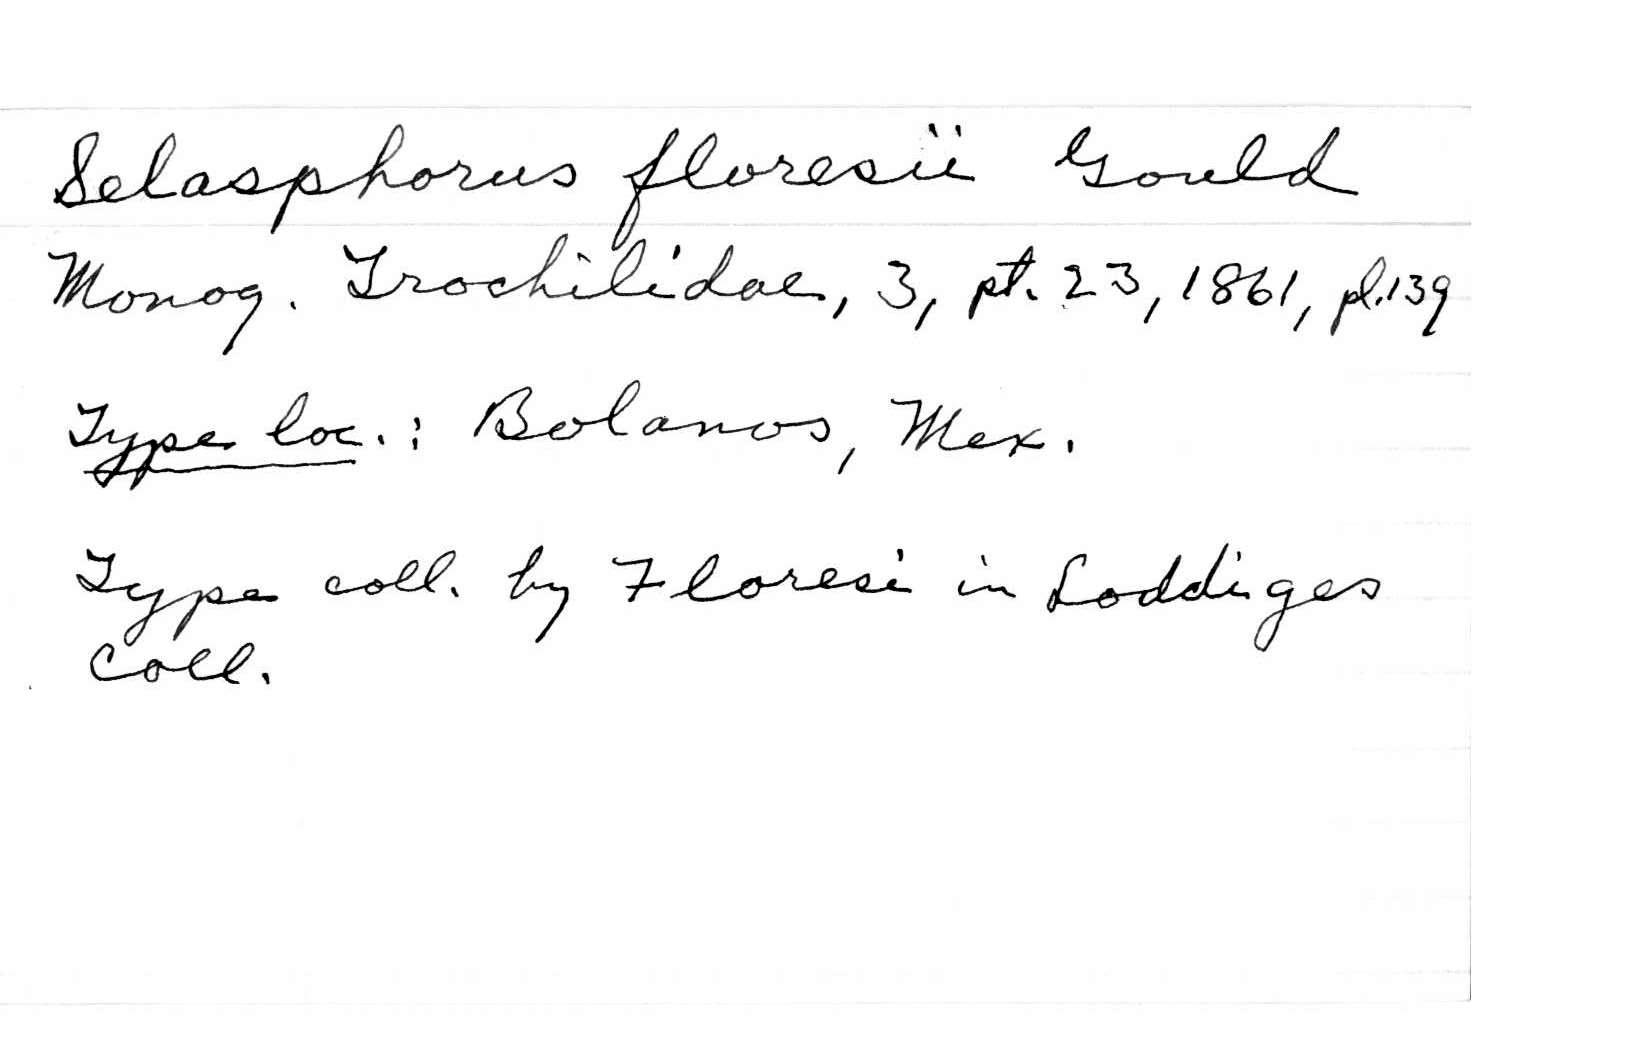 Selasphorus floresii Gould
Monog. Trochilidae, 3, pt. 23, 1861, pl.139
Type loc.: Bolanos, Mex.
Type coll. by Floresi in Loddiges
Coll.